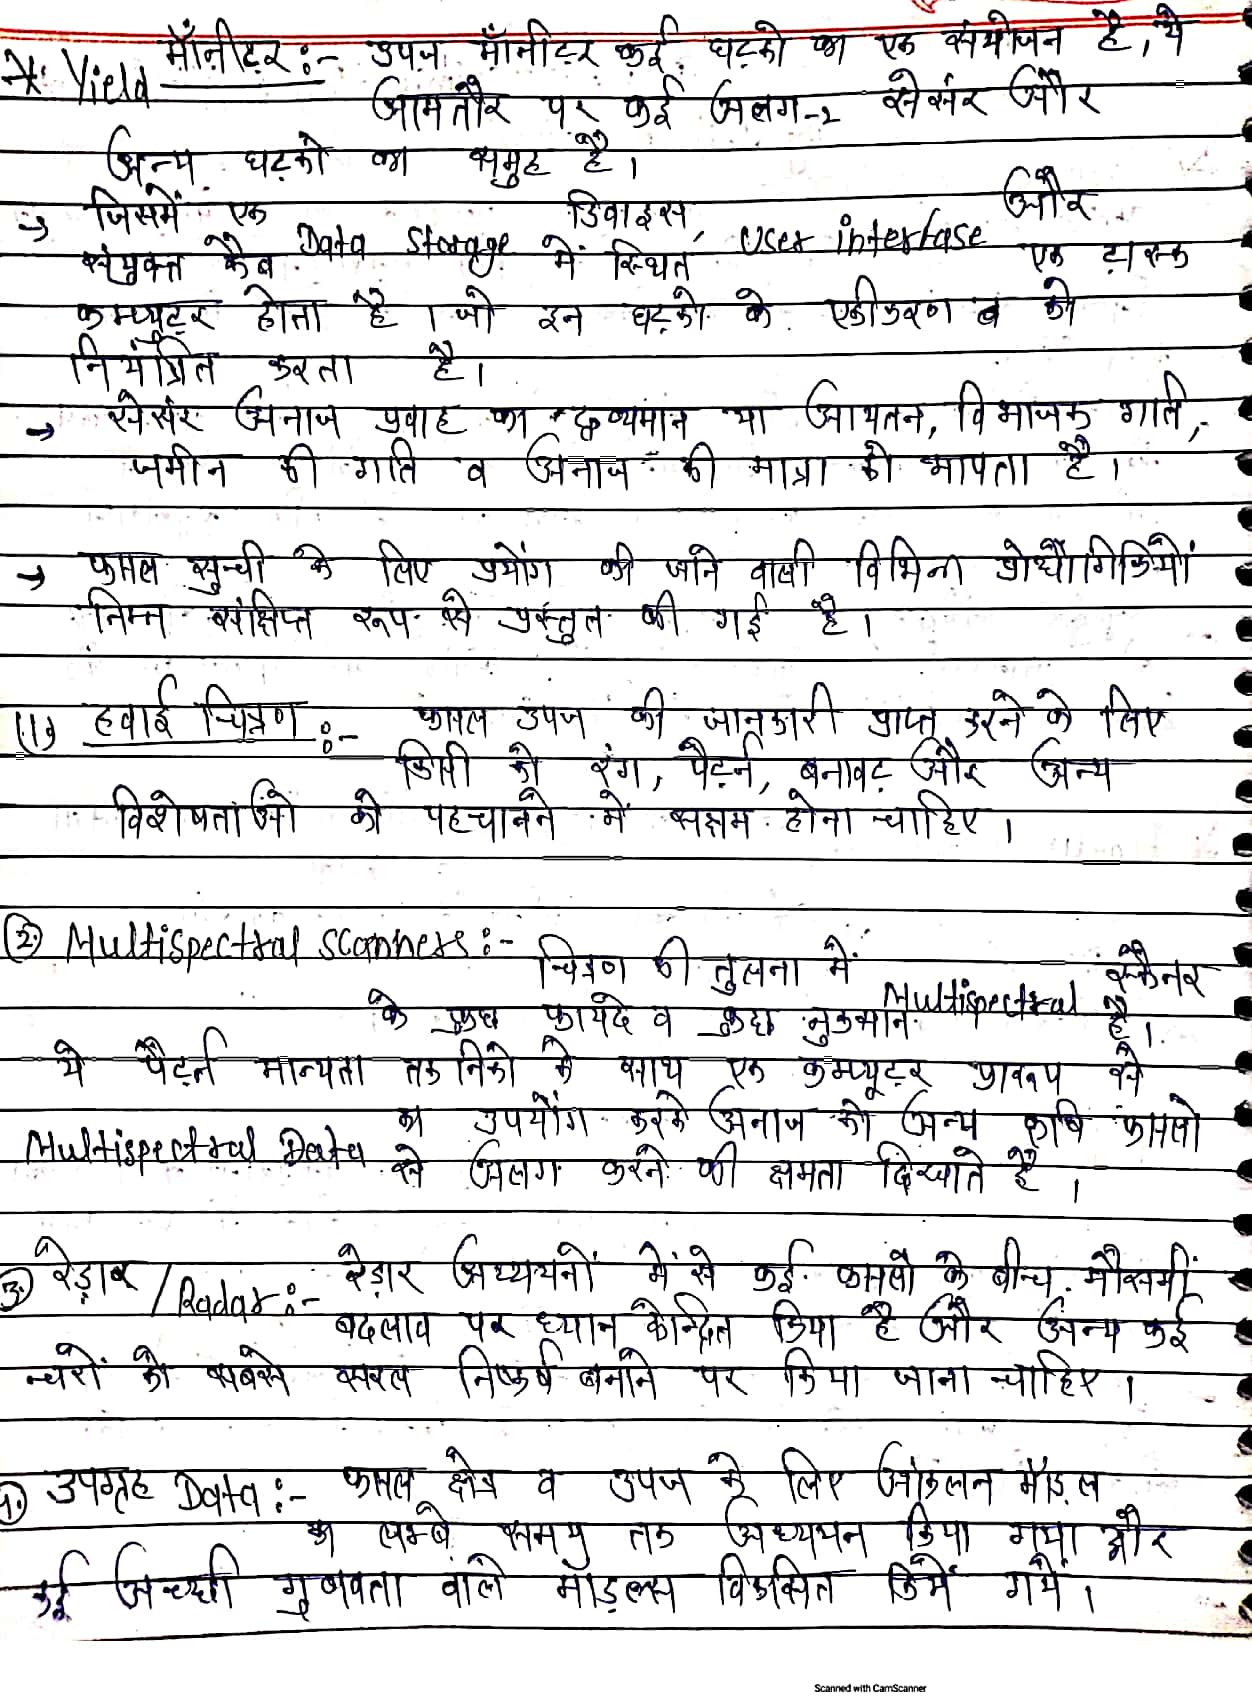 * Yield मॉनीटर :- उपज मॉनीटर कई घटको का एक संयोजन है, ये
आमतौर पर कई अलग-2 सेसंर और
अन्य घटको का समुह है।
→ जिसमें एक Data Storage डिवाइस, User interfase और
संयुक्त कैब में स्थित एक टास्क
कम्प्यूटर होता है। जो इन घटको के एकीकरण व को
नियंत्रित करता है।
→ सेसंर अनाज प्रवाह का द्रव्यमान या आयतन, विभाजक गति,
जमीन की गति व अनाज की मात्रा को मापता है।
→ फसल सुची के लिए प्रयोग की जाने वाली विभिन्न प्रोधौगिकियों
निम्न संक्षिप्त रूप से प्रस्तुत की गई है।
(1) हवाई चित्रण :- फसल उपज की जानकारी प्राप्त करने के लिए
किसी को रंग, पैटर्न, बनावट और अन्य
विशेषताओं को पहचानने में सक्षम होना चाहिए।
(2) Multispectral scanners :- चित्रण की तुलना में Multispectral स्कैनर
के कुछ फायदे व कुछ नुकसान है।
ये पैटर्न मान्यता तकनिको के साथ एक कम्प्यूटर प्रारूप से
Multispectral Data का उपयोग करके अनाज को अन्य कृषि फसलो
से अलग करने की क्षमता दिखाते है।
(3) रेड़ार / Radar :- रेड़ार अध्ययनों में से कई फसलो के बीच मौसमीं
बदलाव पर ध्यान केन्द्रित किया है और अन्य कई
चरों को सबसे सरल निष्कर्ष बनाने पर किया जाना चाहिए।
(4) उपग्रह Data :- फसल क्षेत्र व उपज के लिए आंकलन मॉड़ल
का लम्बे समय तक अध्ययन किया गया और
कई अच्छी गुणवता वाले मॉड़ल्स विकसित किये गये।
Scanned with CamScanner